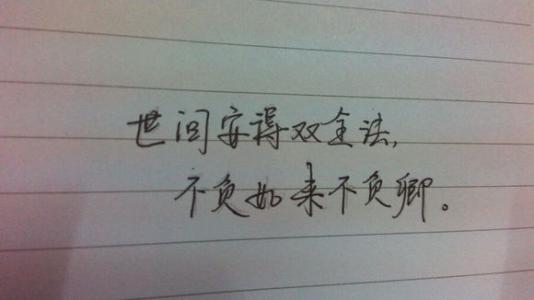 世间安得双全法,
不负如来不负卿。